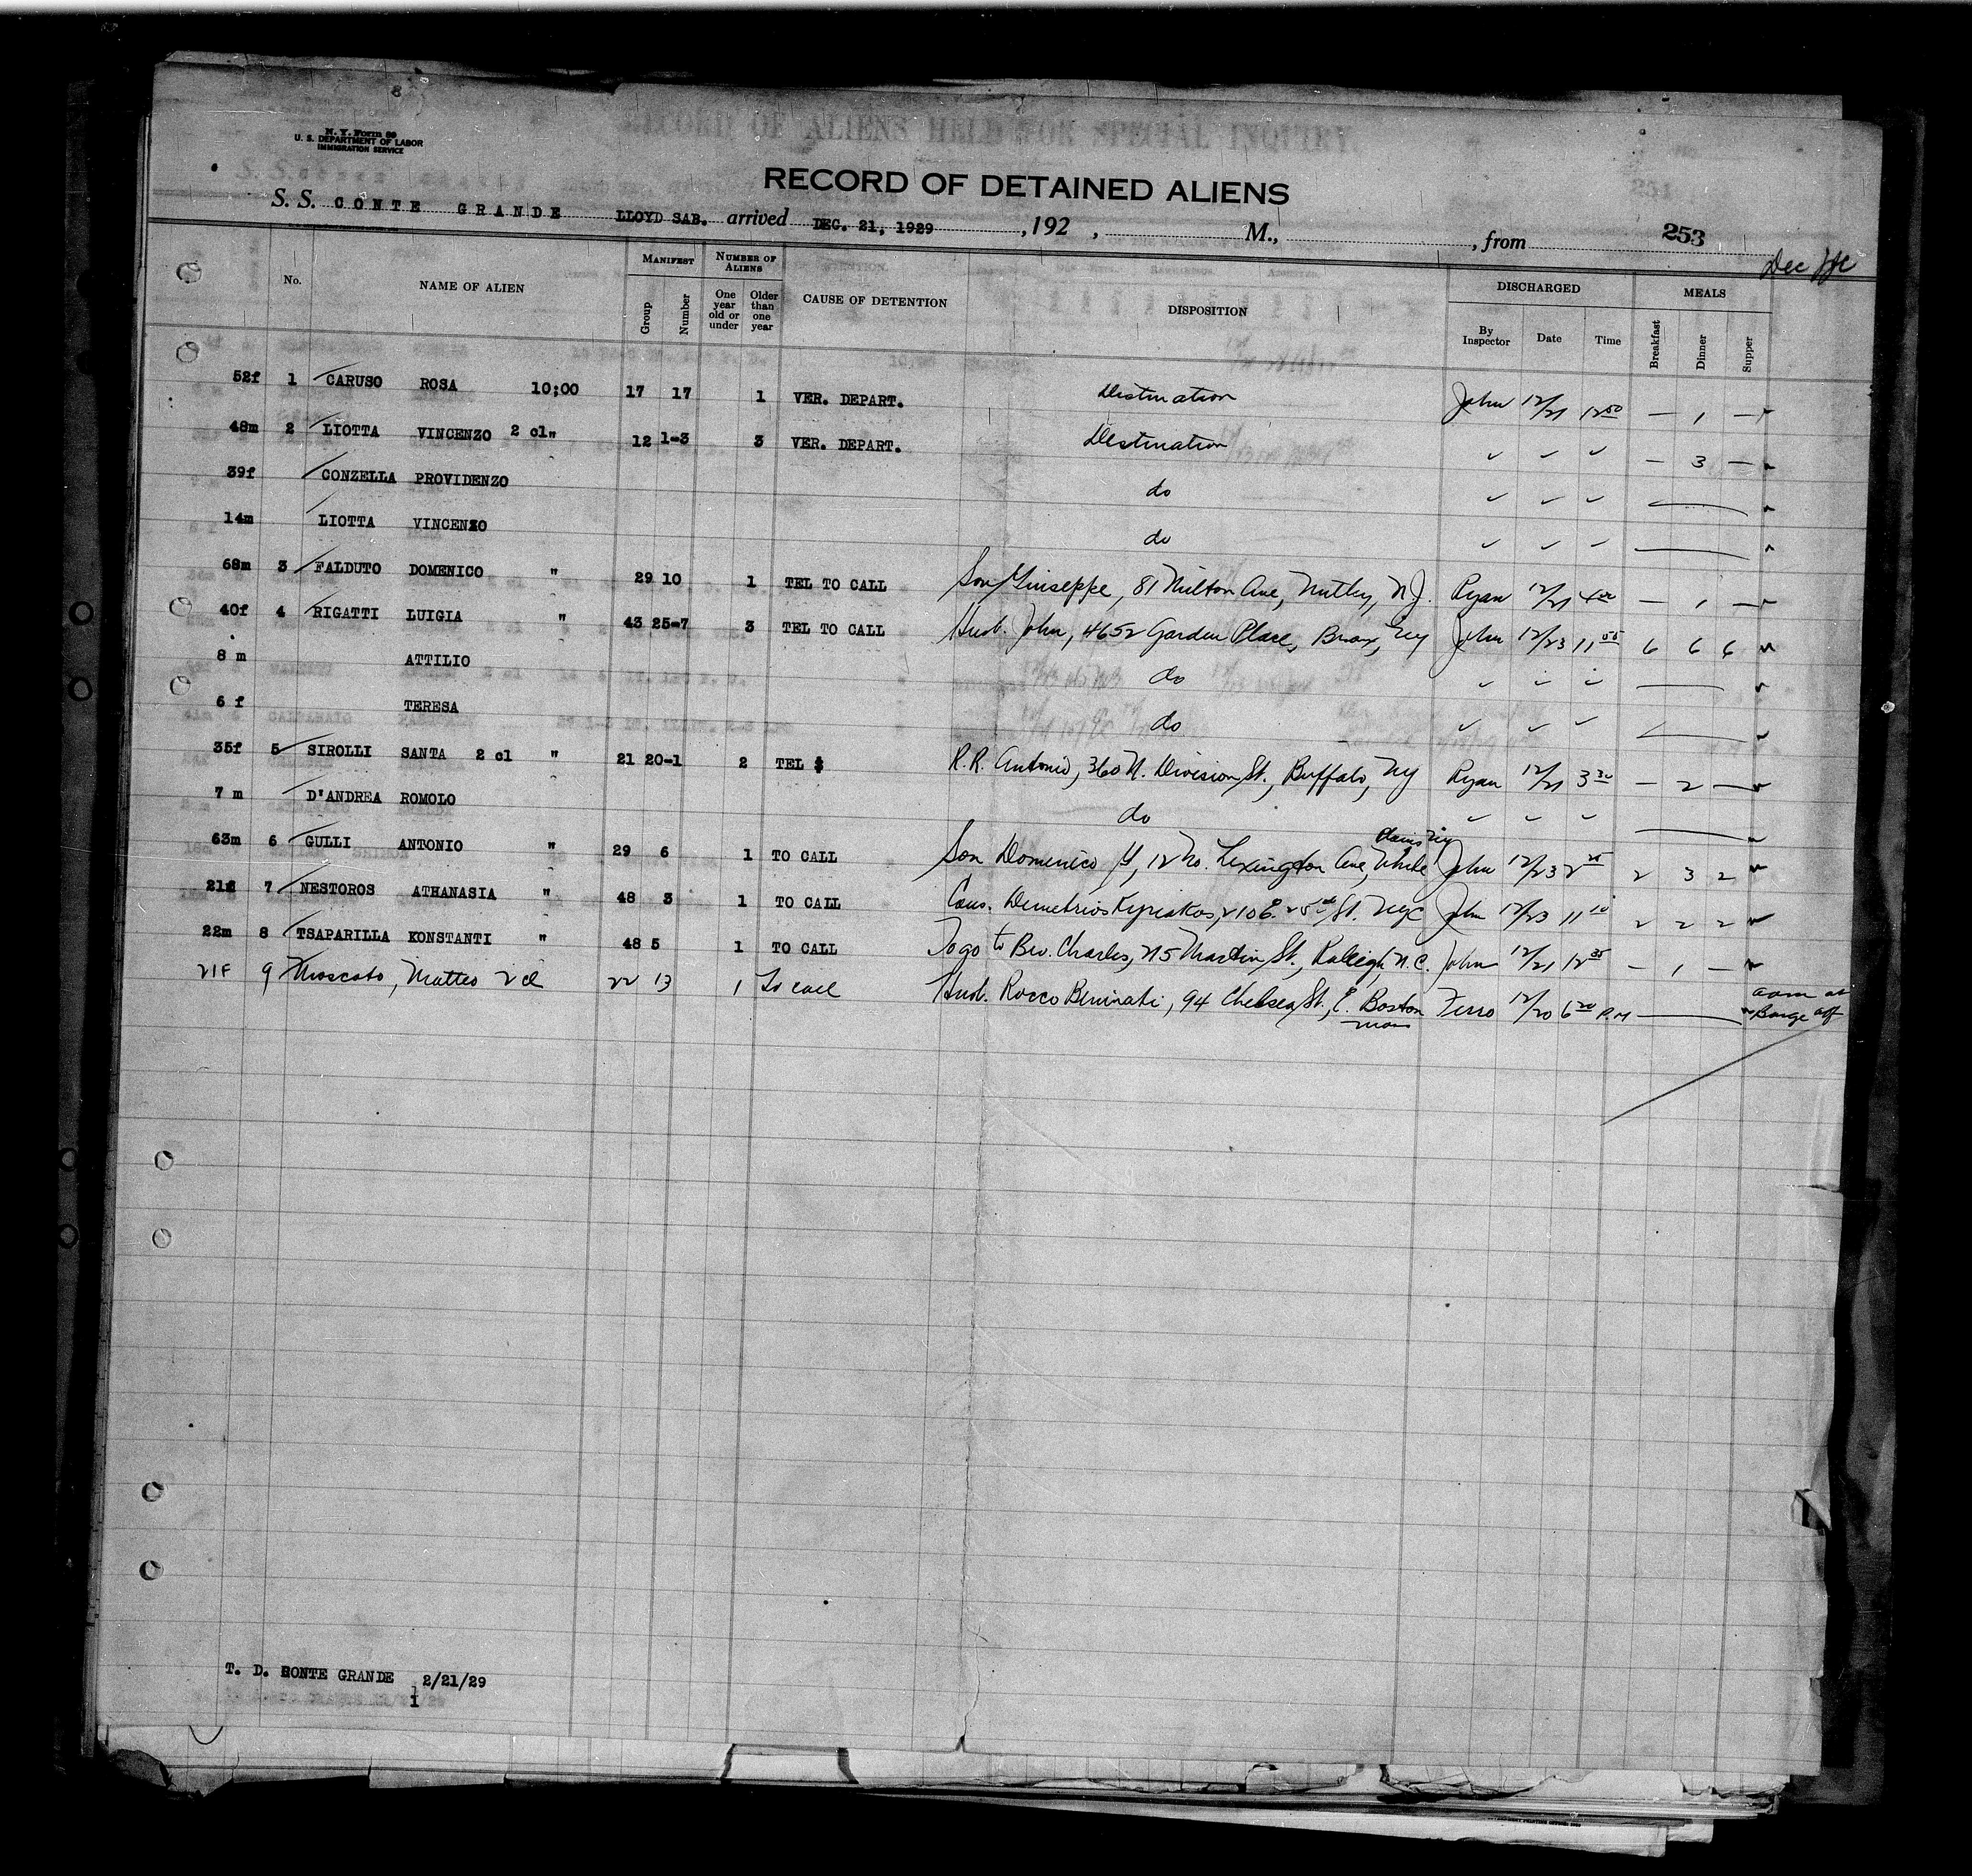 8
N. Y. Form 89
U. S. DEPARTMENT OF LABOR
IMMIGRATION SERVICE
RECORD OF ALIENS HELD FOR SPECIAL INQUIRY
RECORD OF DETAINED ALIENS
S. S. CONTE GRANDE LLOYD SAB. arrived DEC. 21, 1929 , 192 , M., , from 253
Dec
No. NAME OF ALIEN MANIFEST Group Number NUMBER OF ALIENS One year old or under Older than one year CAUSE OF DETENTION DISPOSITION DISCHARGED By Inspector Date Time MEALS Breakfast Dinner Supper
52f 1 CARUSO ROSA 10;00 17 17 1 VER. DEPART. Destination John 12/21 12 50 — 1 —
48m 2 LIOTTA VINCENZO 2 cl " 12 1-3 3 VER. DEPART. Destination ✓ ✓ ✓ — 3 —
39f CONZELLA PROVIDENZO do ✓ ✓ ✓ —
14m LIOTTA VINCENZO do ✓ ✓ ✓ —
68m 3 FALDUTO DOMENICO " 29 10 1 TEL TO CALL Son Giuseppe, 81 Milton Ave, Nutley, N.J. Ryan 12/21 4 00 — 1 —
40f 4 RIGATTI LUIGIA " 43 25-7 3 TEL TO CALL Husb. John, 4652 Garden Place, Bronx, NY John 12/23 11 55 6 6 6
8 m ATTILIO do ✓ ✓ ✓ —
6 f TERESA do ✓ ✓ ✓ —
35f 5 SIROLLI SANTA 2 cl " 21 20-1 2 TEL $ R.R. Antonio, 360 N. Division St., Buffalo, NY Ryan 12/21 3 30 — 2 —
7 m D'ANDREA ROMOLO do ✓ ✓ ✓ —
63m 6 GULLI ANTONIO " 29 6 1 TO CALL Son Domenico G, 12 No. Lexington Ave, White Plains NY John 12/23 2 25 2 3 2
21f 7 NESTOROS ATHANASIA " 48 3 1 TO CALL Cous. Demetrios Kyriakos, 210 E. 25th St. NYC John 12/23 11 10 2 2 2
22m 8 TSAPARILLA KONSTANTI " 48 5 1 TO CALL To go to Bro. Charles, 215 Martin St., Raleigh, N.C. John 12/21 12 35 — 1 —
21F 9 Moscato, Matteo 2 cl 22 13 1 To call Husb. Rocco Beninati, 94 Chelsea St., E. Boston Mass Ferro 12/20 6 20 P.M — adm at Barge off
T. D. CONTE GRANDE 2/21/29
1